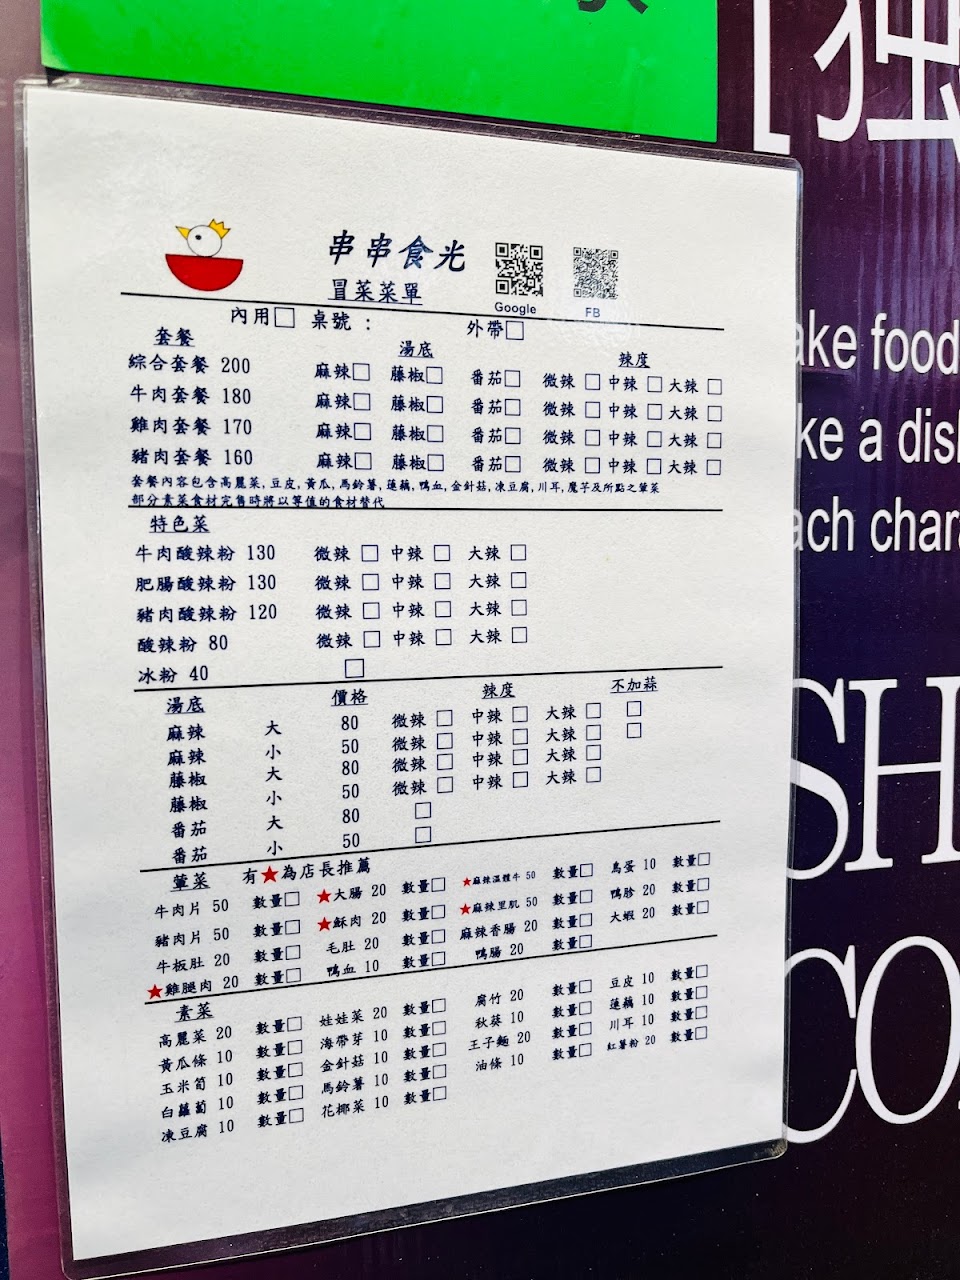 [独
串串食光
冒菜菜單
Google
FB
內用□ 桌號：
外帶□
套餐 湯底 辣度
綜合套餐 200 麻辣□ 藤椒□ 番茄□ 微辣 □ 中辣 □ 大辣 □
牛肉套餐 180 麻辣□ 藤椒□ 番茄□ 微辣 □ 中辣 □ 大辣 □
雞肉套餐 170 麻辣□ 藤椒□ 番茄□ 微辣 □ 中辣 □ 大辣 □
豬肉套餐 160 麻辣□ 藤椒□ 番茄□ 微辣 □ 中辣 □ 大辣 □
套餐內容包含高麗菜,豆皮,黃瓜,馬鈴薯,蓮藕,鴨血,金針菇,凍豆腐,川耳,魔芋及所點之葷菜
部分素菜食材完售時將以等值的食材替代
特色菜
牛肉酸辣粉 130 微辣 □ 中辣 □ 大辣 □
肥腸酸辣粉 130 微辣 □ 中辣 □ 大辣 □
豬肉酸辣粉 120 微辣 □ 中辣 □ 大辣 □
酸辣粉 80 微辣 □ 中辣 □ 大辣 □
冰粉 40 □
湯底 價格 辣度 不加蒜
麻辣 大 80 微辣 □ 中辣 □ 大辣 □ □
麻辣 小 50 微辣 □ 中辣 □ 大辣 □ □
藤椒 大 80 微辣 □ 中辣 □ 大辣 □
藤椒 小 50 微辣 □ 中辣 □ 大辣 □
番茄 大 80 □
番茄 小 50 □
葷菜 有★為店長推薦
牛肉片 50 數量□ ★大腸 20 數量□ ★麻辣溫體牛 50 數量□ 鳥蛋 10 數量□
豬肉片 50 數量□ ★酥肉 20 數量□ ★麻辣里肌 50 數量□ 鴨胗 20 數量□
牛板肚 20 數量□ 毛肚 20 數量□ 麻辣香腸 20 數量□ 大蝦 20 數量□
★雞腿肉 20 數量□ 鴨血 10 數量□ 鴨腸 20 數量□
素菜
高麗菜 20 數量□ 娃娃菜 20 數量□ 腐竹 20 數量□ 豆皮 10 數量□
黃瓜條 10 數量□ 海帶芽 10 數量□ 秋葵 10 數量□ 蓮藕 10 數量□
玉米筍 10 數量□ 金針菇 10 數量□ 王子麵 20 數量□ 川耳 10 數量□
白蘿蔔 10 數量□ 馬鈴薯 10 數量□ 油條 10 數量□ 紅薯粉 20 數量□
凍豆腐 10 數量□ 花椰菜 10 數量□
ake food
ke a dish
ach chara
SH
CO